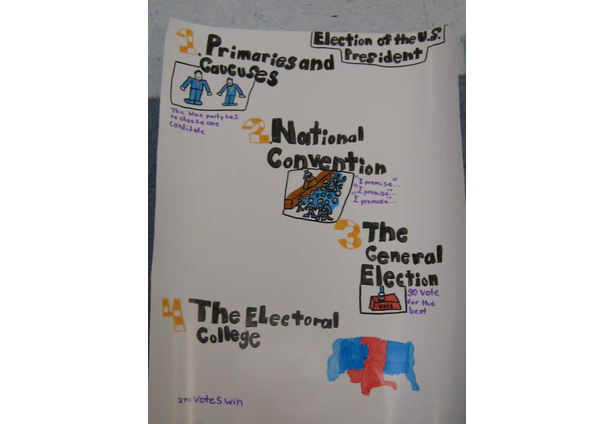 Election of the U.S.
President
1. Primaries and
Caucuses
The blue party has
to choose one
candidate
2. National
Convention
"I promise..."
"I promise..."
"I promise...
3 The
General
Election
Vote
go vote
for the
best
4 The Electoral
College
270 Votes win